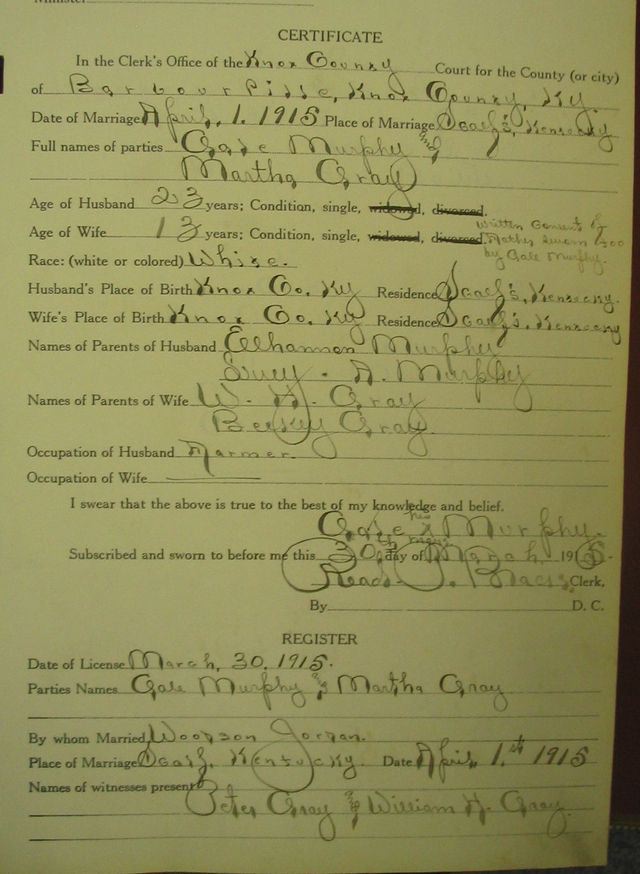 CERTIFICATE
In the Clerk's Office of the Knox County Court for the County (or city)
of Barbourville, Knox County, Ky.
Date of Marriage April, 1. 1915 Place of Marriage Kentucky
Full names of parties Gale Murphy &
Martha Gray
Age of Husband 23 years; Condition, single, widowed, divorced.
Age of Wife 13 years; Condition, single, widowed, divorced. Written Consent of
Mother sworn too
by Gale Murphy.
Race: (white or colored) White.
Husband's Place of Birth Knox Co. Ky Residence Kentucky.
Wife's Place of Birth Knox Co. Ky Residence Kentucky
Names of Parents of Husband Elhannon Murphy
A. Murphy
Names of Parents of Wife W. H. Gray
Gray.
Occupation of Husband Farmer.
Occupation of Wife
I swear that the above is true to the best of my knowledge and belief.
Gale his x mark Murphy.
Subscribed and sworn to before me this 30th day of March 1915.
Read Clerk,
By D. C.
REGISTER
Date of License March, 30, 1915.
Parties Names Gale Murphy & Martha Gray
By whom Married Woodson
Place of Marriage Kentucky. Date April 1.th 1915
Names of witnesses present Peter Gray & William H. Gray.